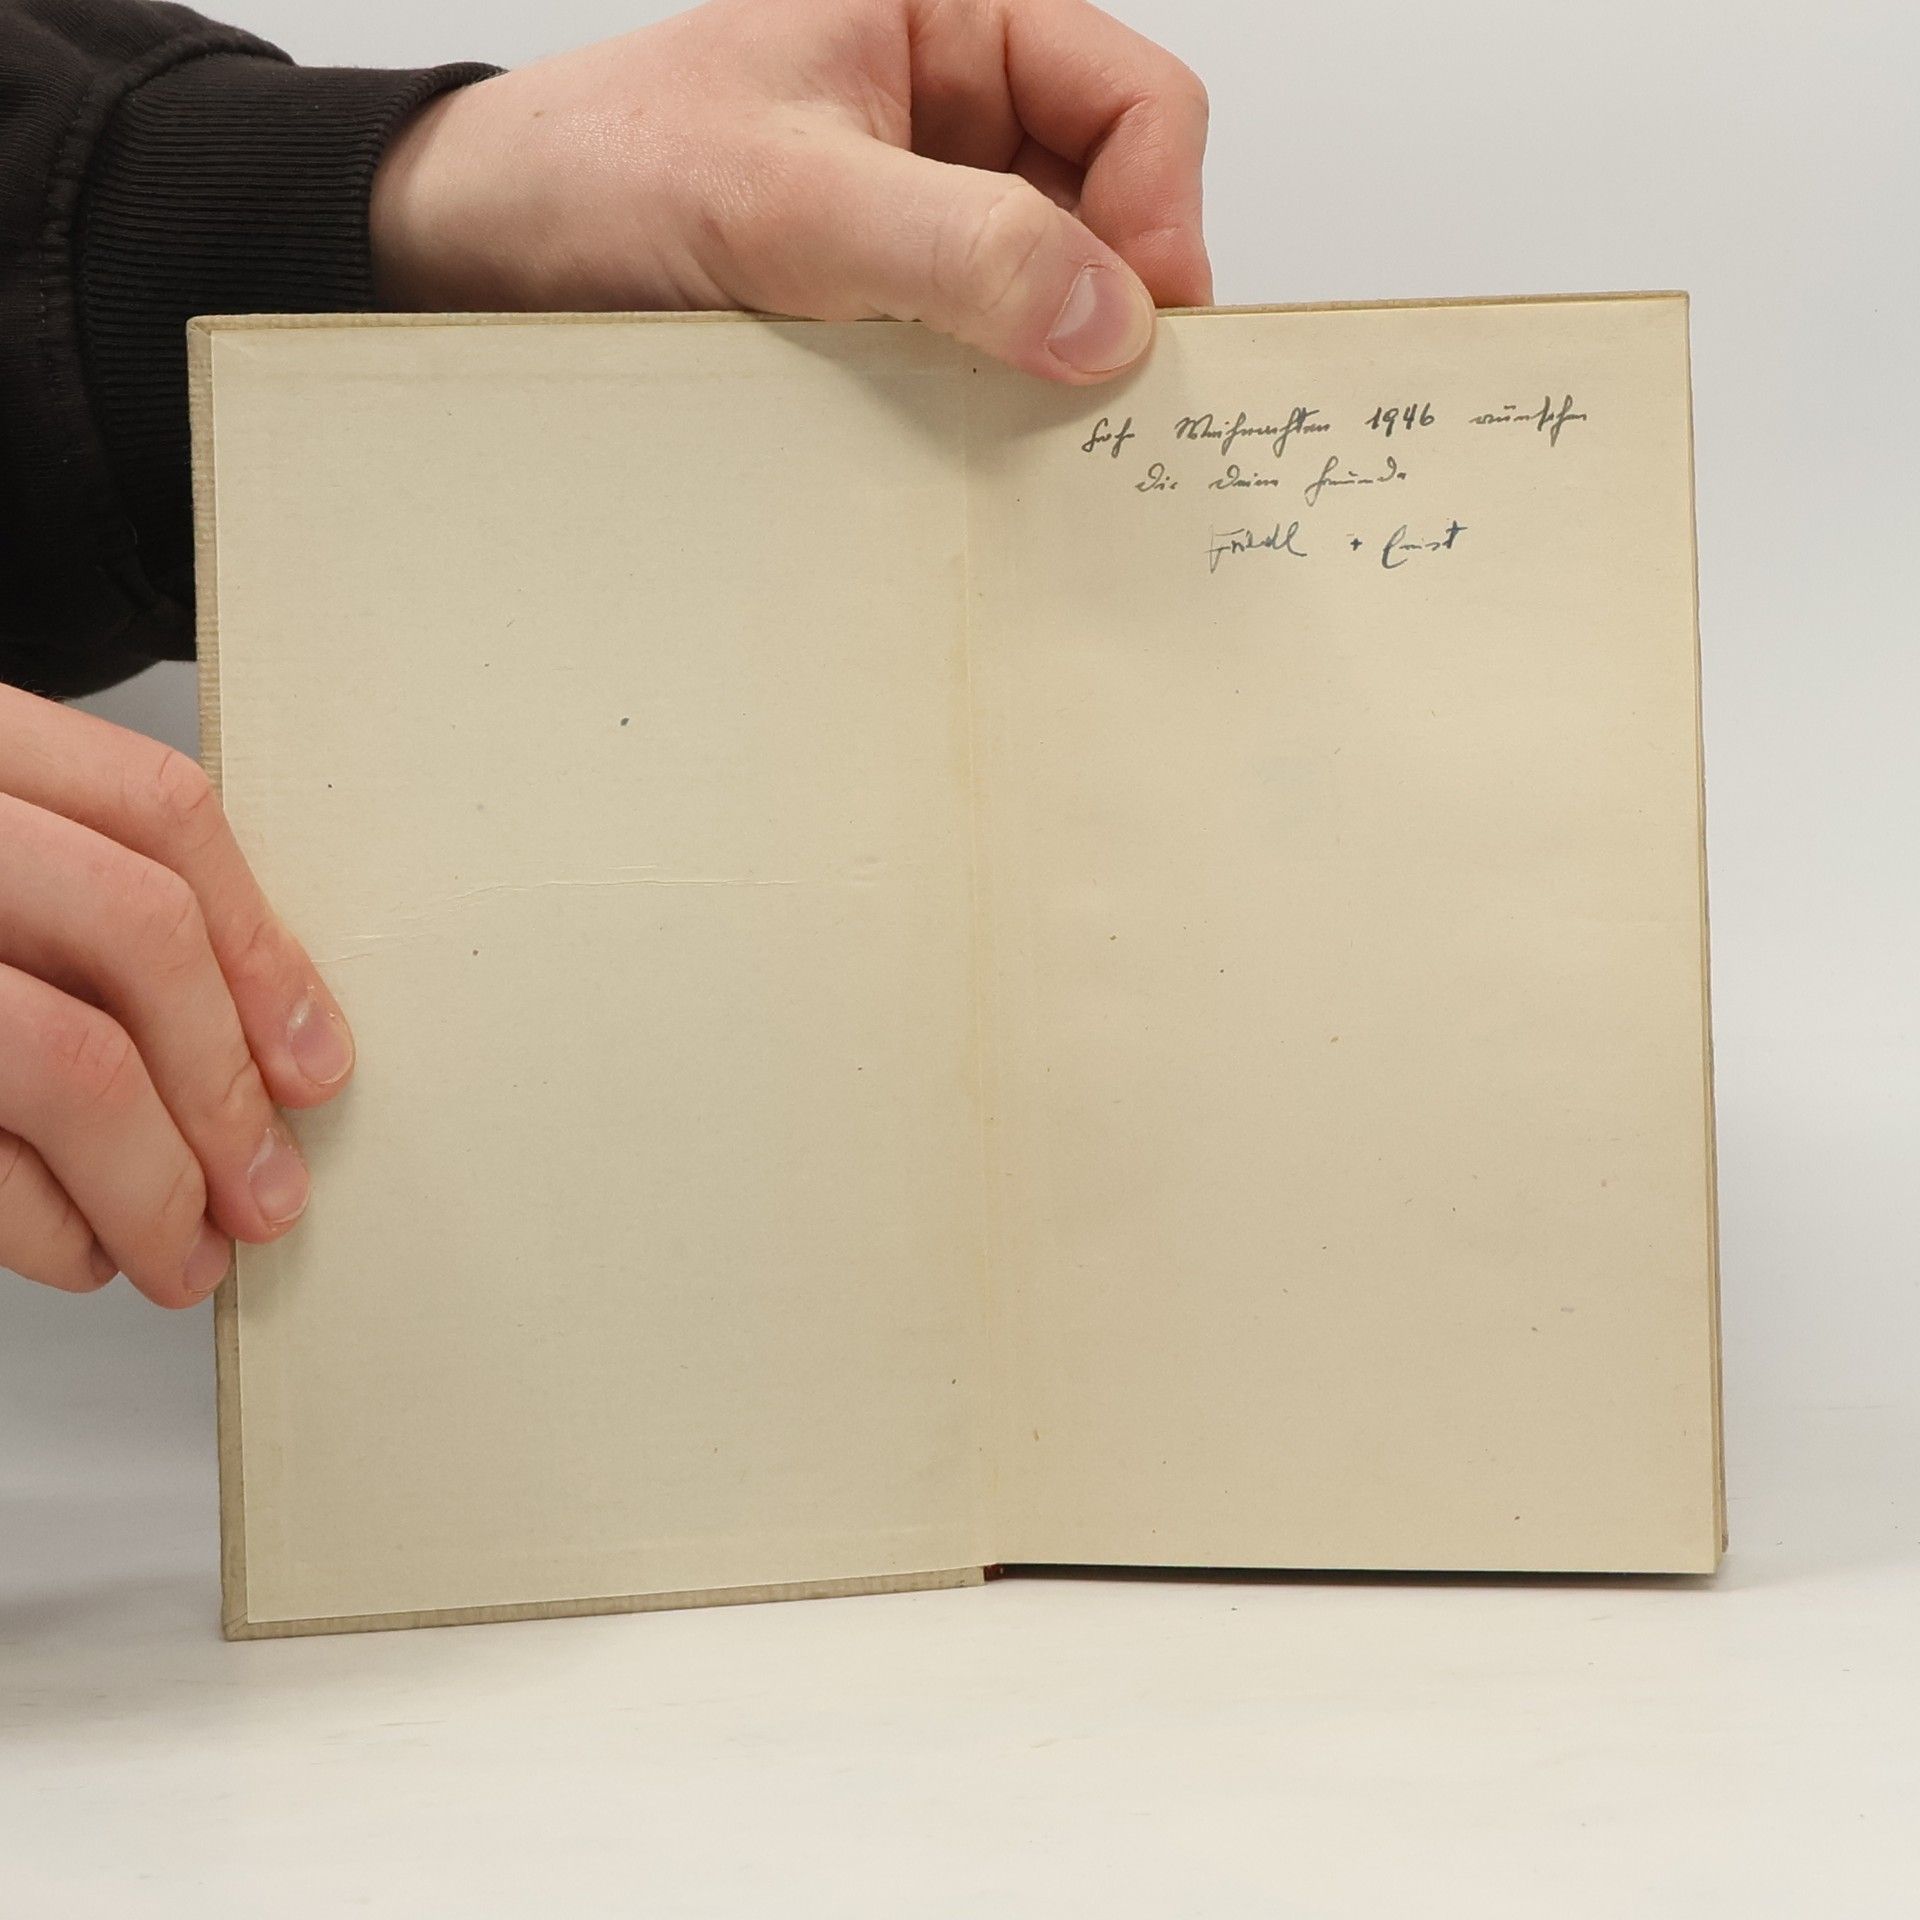 Frohe Weihnachten 1946 wünschen
Dir Deine Freunde
Friedl + Ernst